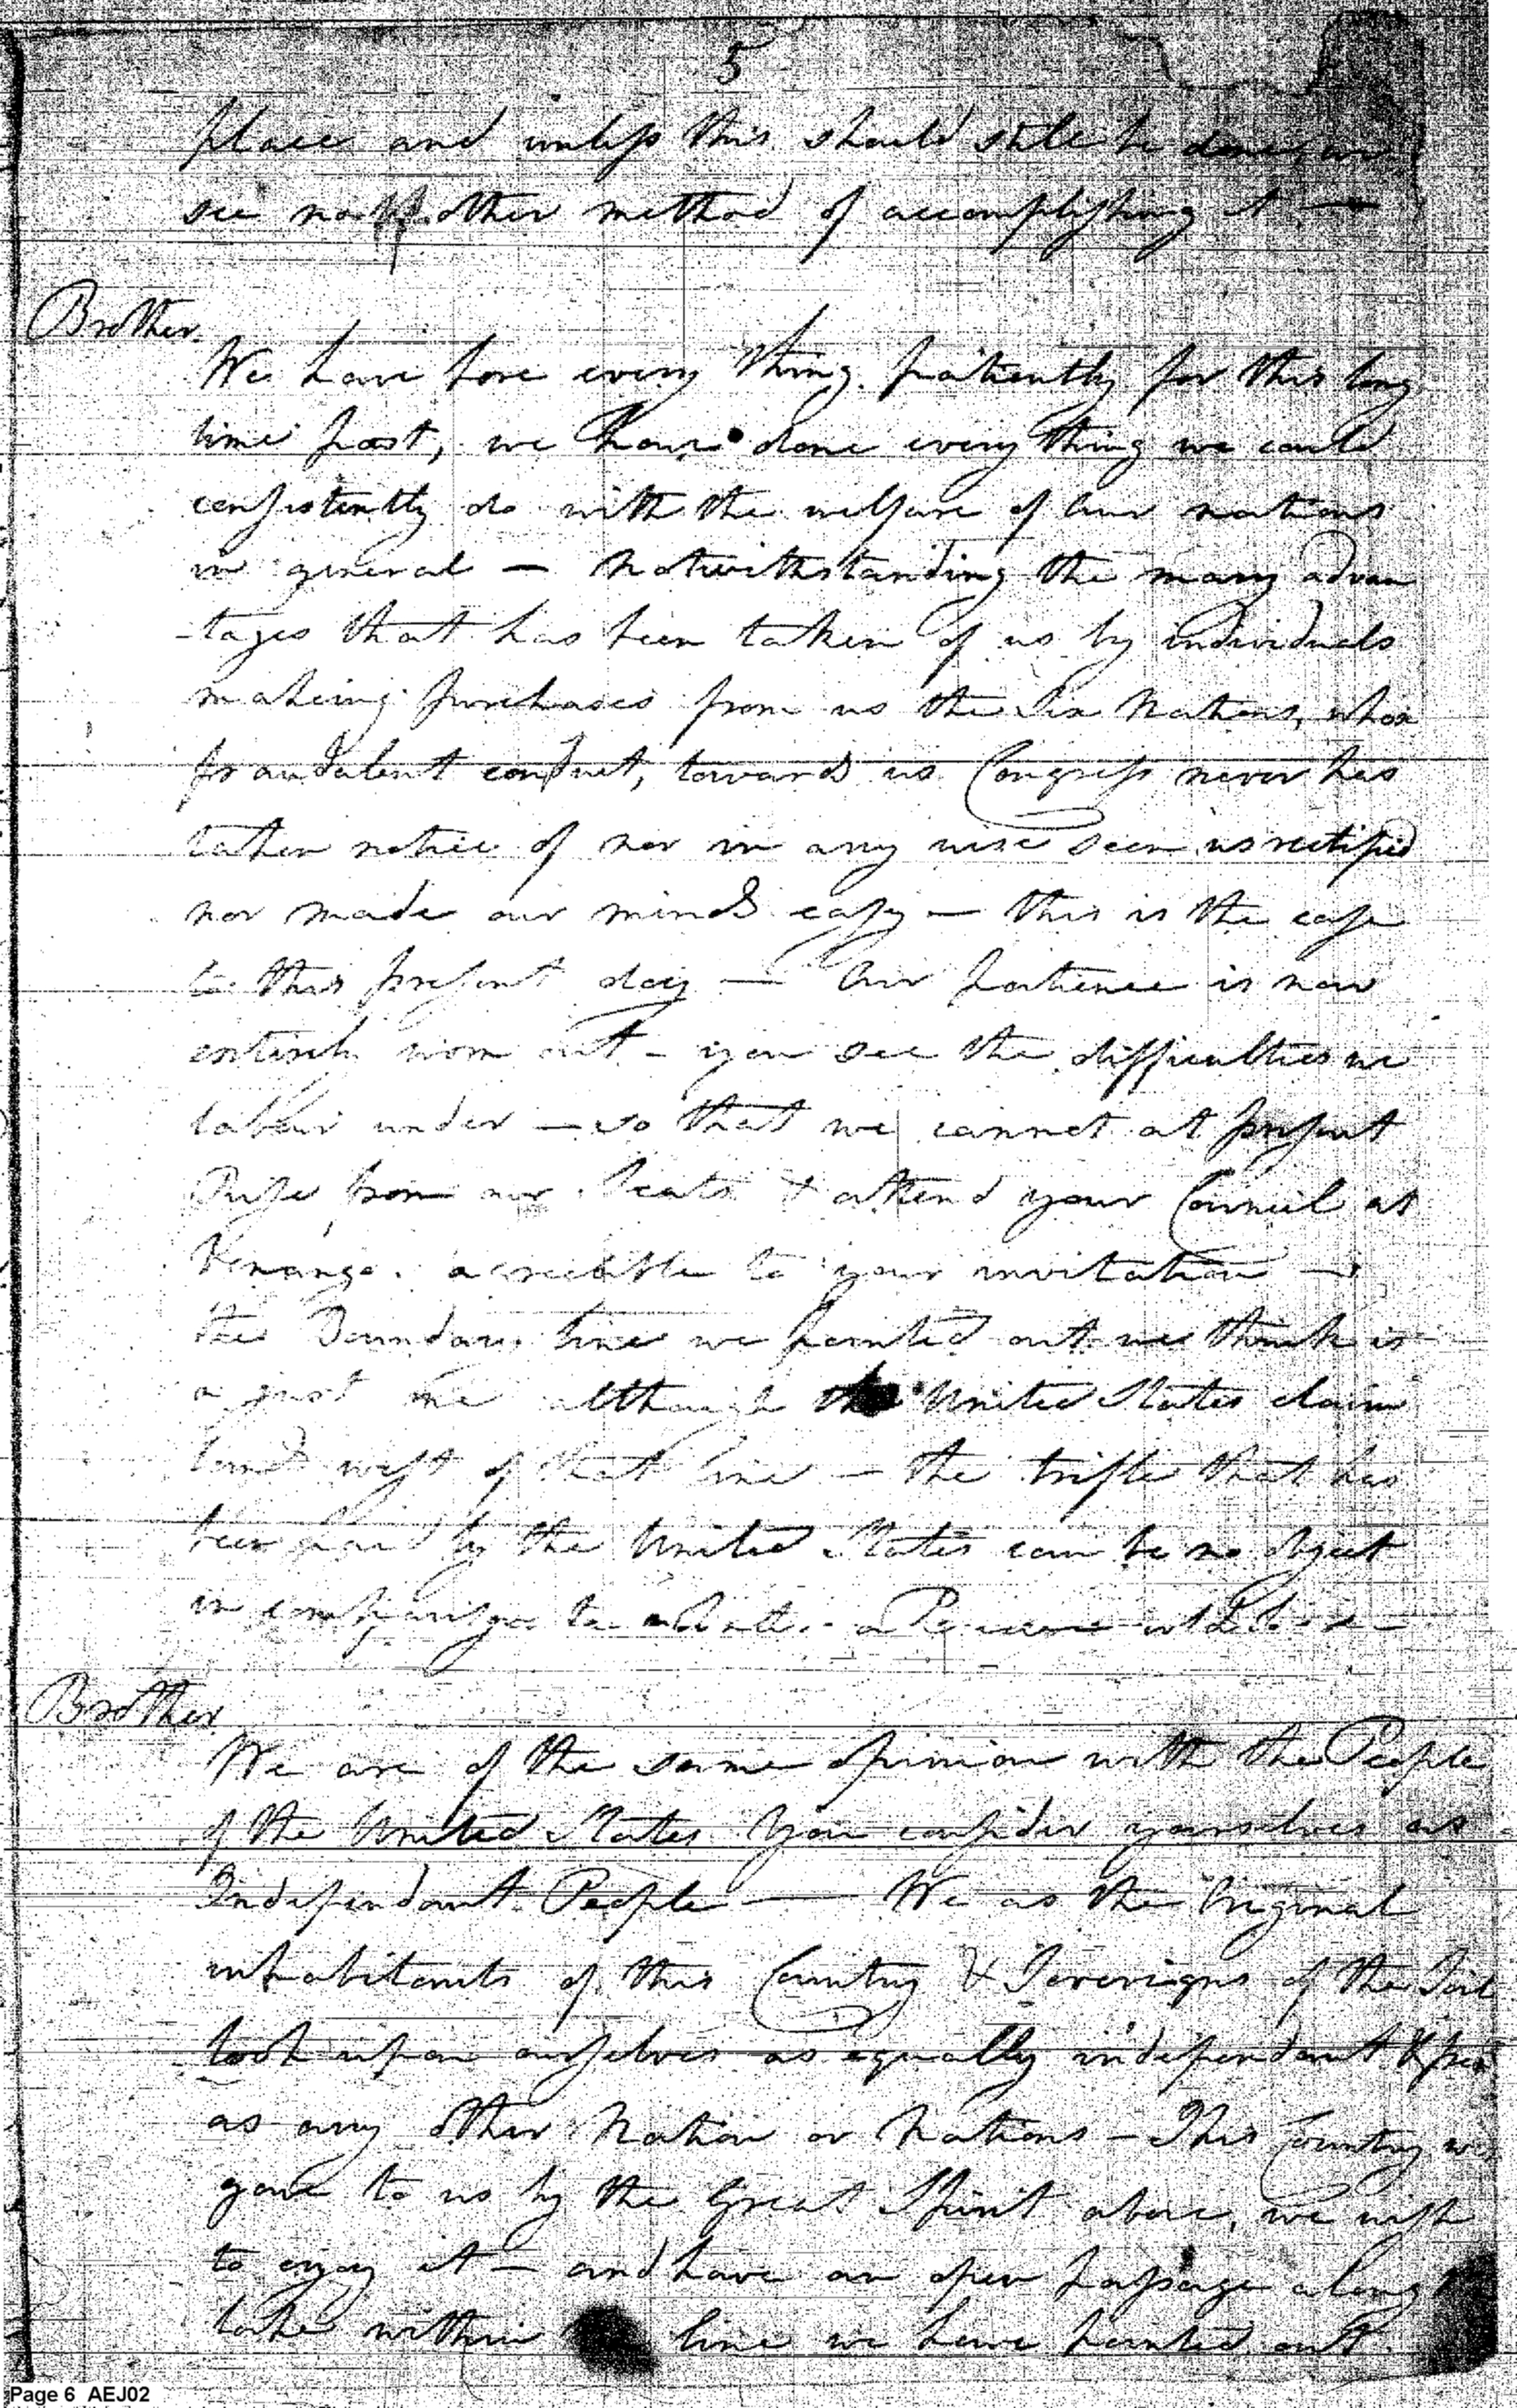 5
place and unless this should still be done, we
see no other method of accomplishing it —
Brother.
We have bore every thing patiently for this long
time past, we have done every thing we could
consistently do with the welfare of our nations
in general — Notwithstanding the many advan
-tages that has been taken of us by individuals
making purchases from us the Six Nations, whose
fraudulent conduct, towards us Congress never has
taken notice of nor in any wise seen us rectified
nor made our minds easy — this is the case
to this present day — Our patience is now
entirely worn out — you see the difficulties we
labour under — so that we cannot at present
Rise from our Seats & attend your Council at
Venango. agreeable to your invitation —
the Boundary line we pointed out we think is
a just one although the United States claim
lands west of that line — the trifle that has
been paid by the United States can be no object
in comparison to a
Brother
We are of the same opinion with the People
of the United States you consider yourselves as
Independant People — We as the Original
inhabitants of this Country & Sovereigns of the Soil
look upon ourselves as equally independant & free
as any other Nation or Nations — This Country was
gave to us by the Great Spirit above, we wish
to enjoy it — and have an open passage along
lake within line we have pointed out.
Page 6 AEJ02